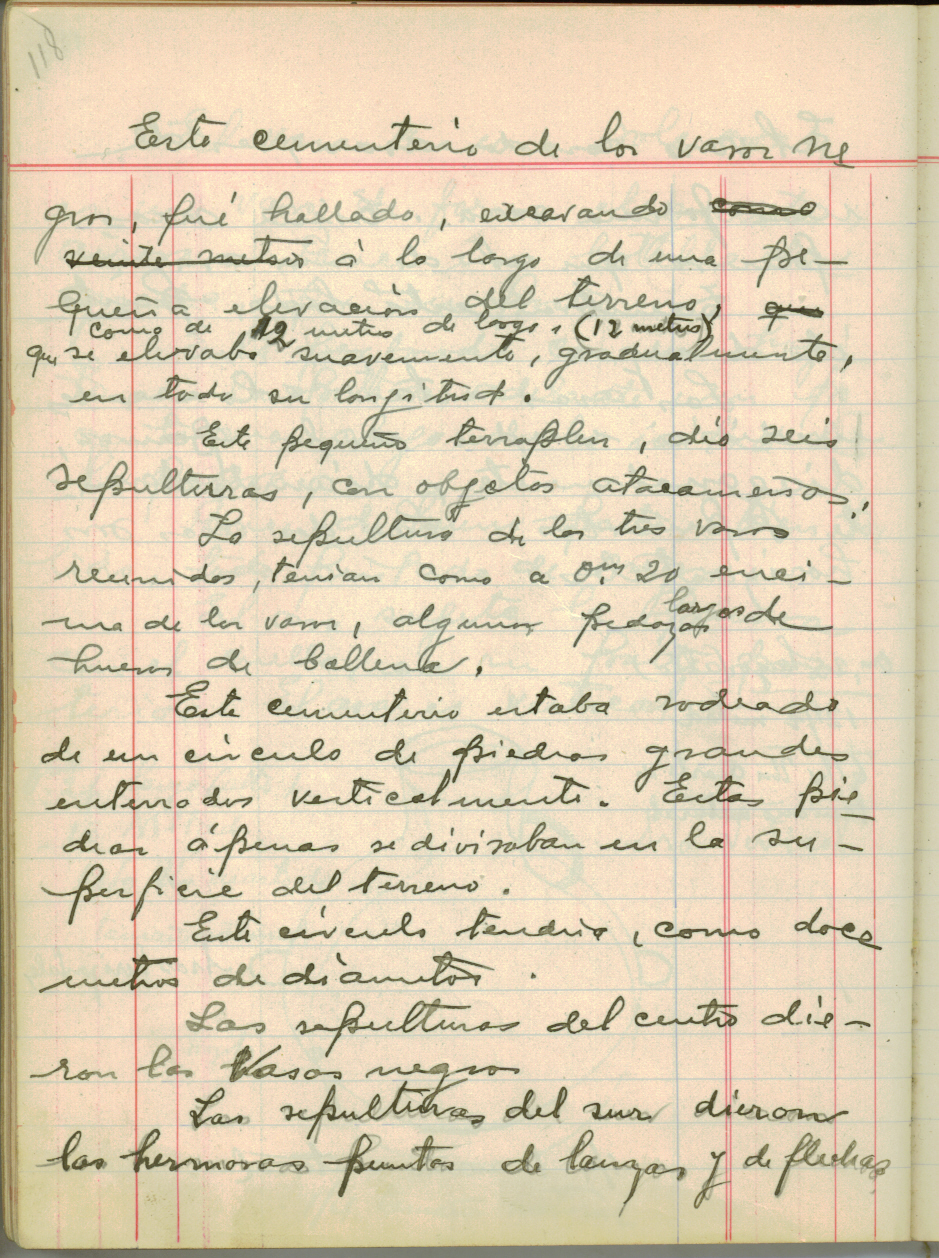 118
Este cementerio de los vasos ne
gros, fué hallado, excavando como
veinte metros á lo largo de una pe—
queña elevación del terreno, que
como de 12 metros de largo, (12 metros)
que se elevaba suavemente, gradualmente,
en todo su longitud.
Este pequeño terraplen, dió seis
sepulturas, con objetos atacameños.
La sepultura de los tres vasos
reunidos, tenian como a 0.m 20 enci—
ma de los vasos, algunos pedazos largos de
huesos de ballena.
Este cementerio estaba rodeado
de un circulo de piedras grandes
enterrados verticalmente. Estas pie
dras ápenas se divisaban en la su—
perficie del terreno.
Este círculo tendria, como doce
metros de diametro.
Las sepulturas del centro die—
ron los Vasos negros
Las sepulturas del sur dieron
las hermosas puntas de lanzas y de flechas